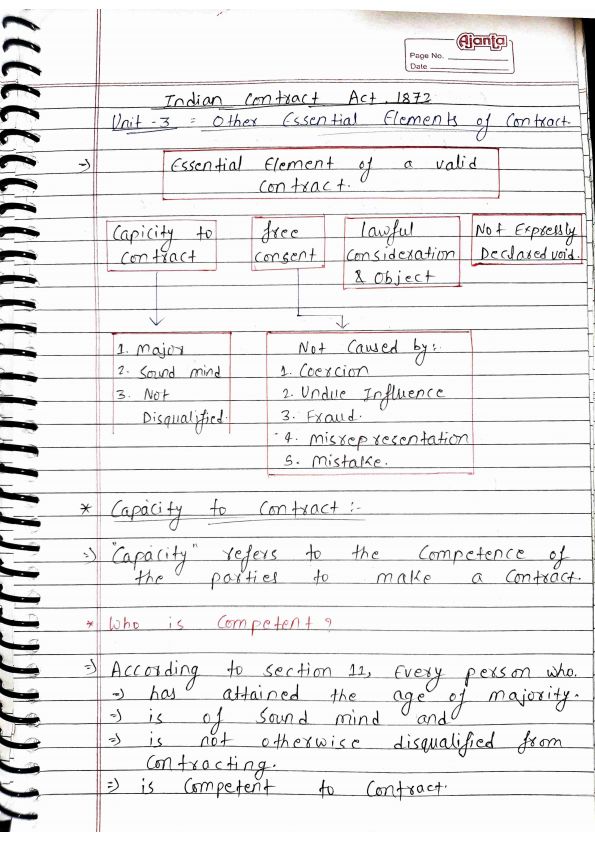 Ajanta
Page No.
Date
Indian Contract Act, 1872
Unit - 3 = Other Essential Elements of Contract.
→ Essential Element of a valid
Contract.
Capicity to
Contract
free
Consent
lawful
Consideration
& Object
Not Expressly
Declared void.
1. Major
2. Sound mind
3. Not
Disqualified.
Not Caused by:
1. Coercion
2. Undue Influence
3. Fraud.
4. misrepresentation
5. Mistake.
* Capacity to Contract :-
⇒ "Capacity" refers to the Competence of
the parties to make a Contract.
* Who is Competent ?
⇒ According to section 11, Every person who.
⇒ has attained the age of majority.
⇒ is of Sound mind and
⇒ is not otherwise disqualified from
Contracting.
⇒ is Competent to Contract.